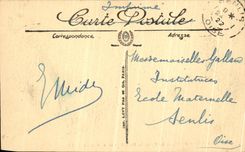 Imprimé
Carte Postale
Correspondance
Adresse
Mesdemoiselles Gallan
Institutrices
Ecole Maternelle
Senlis
Oise